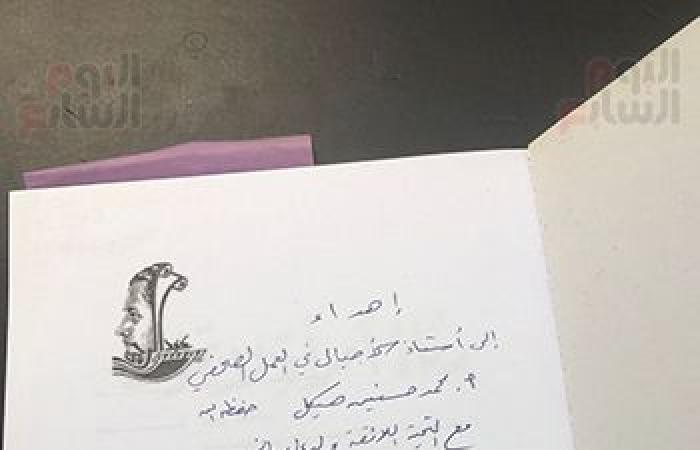 اليوم السابع
اليوم السابع
إهداء
إلى أستاذ في العمل الصحفي
أ. محمد حسنين هيكل حفظه الله
مع التحية اللائقة